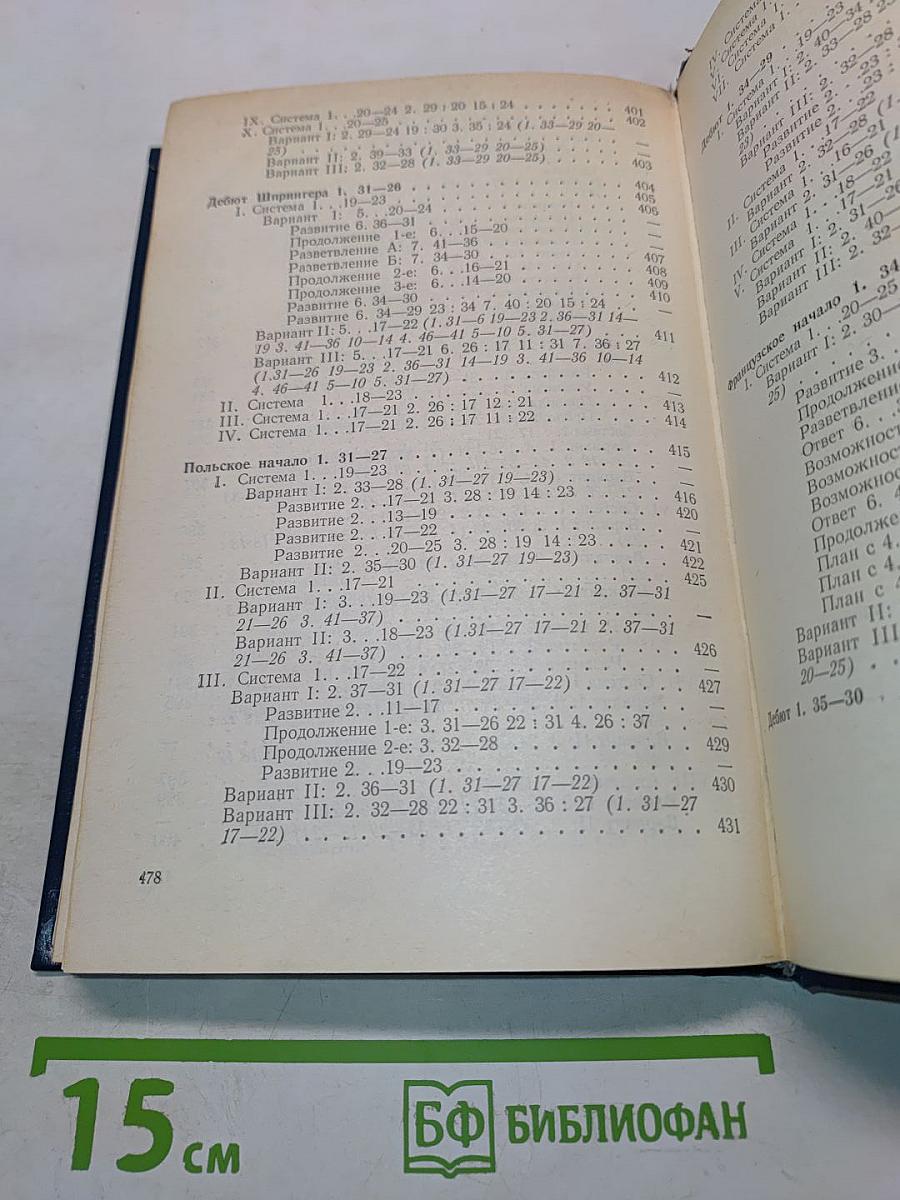 IX. Система 1. . .20—24 2. 29 : 20 15 : 24 . . . . . . . 401
X. Система 1. . .20—25 . . . . . . . . . . . . 402
Вариант I: 2. 29—24 19 : 30 3. 35 : 24 (1. 33—29 20—
25) . . . . . . . . . . . . . . . . —
Вариант II: 2. 39—33 (1. 33—29 20—25) . . . . . . —
Вариант III: 2. 32—28 (1. 33—29 20—25) . . . . . . 403
Дебют Шпрингера 1. 31—26 . . . . . . . . . . . 404
I. Система 1. . .19—23 . . . . . . . . . . . . 405
Вариант I: 5. . .20—24 . . . . . . . . . . . 406
Развитие 6. 36—31 . . . . . . . . . . . . —
Продолжение 1-е: 6. . .15—20 . . . . . . . . —
Разветвление А: 7. 41—36 . . . . . . . . . —
Разветвление Б: 7. 34—30 . . . . . . . . . 407
Продолжение 2-е: 6. . .16—21 . . . . . . . . 408
Продолжение 3-е: 6. . .14—20 . . . . . . . . 409
Развитие 6. 34—30 . . . . . . . . . . . . 410
Развитие 6. 34—29 23 : 34 7. 40 : 20 15 : 24 . . . —
Вариант II: 5. . .17—22 (1. 31—6 19—23 2. 36—31 14—
19 3. 41—36 10—14 4. 46—41 5—10 5. 31—27) . . . 411
Вариант III: 5. . .17—21 6. 26 : 17 11 : 31 7. 36 : 27
(1.31—26 19—23 2. 36—31 14—19 3. 41—36 10—14
4. 46—41 5—10 5. 31—27) . . . . . . . . . . 412
II. Система 1. . .18—23 . . . . . . . . . . . . —
III. Система 1. . .17—21 2. 26 : 17 12 : 21 . . . . . . 413
IV. Система 1. . .17—21 2. 26 : 17 11 : 22 . . . . . . 414
Польское начало 1. 31—27 . . . . . . . . . . . 415
I. Система 1. . .19—23 . . . . . . . . . . . . —
Вариант I: 2. 33—28 (1. 31—27 19—23) . . . . . . —
Развитие 2. . .17—21 3. 28 : 19 14 : 23 . . . . . 416
Развитие 2. . .13—19 . . . . . . . . . . . 420
Развитие 2. . .17—22 . . . . . . . . . . . —
Развитие 2. . .20—25 3. 28 : 19 14 : 23 . . . . . 421
Вариант II: 2. 35—30 (1. 31—27 19—23) . . . . . . 422
II. Система 1. . .17—21 . . . . . . . . . . . . 425
Вариант I: 3. . .19—23 (1.31—27 17—21 2. 37—31
21—26 3. 41—37) . . . . . . . . . . . . . —
Вариант II: 3. . .18—23 (1.31—27 17—21 2. 37—31
21—26 3. 41—37) . . . . . . . . . . . . . 426
III. Система 1. . .17—22 . . . . . . . . . . . . —
Вариант I: 2. 37—31 (1. 31—27 17—22) . . . . . . 427
Развитие 2. . .11—17 . . . . . . . . . . . —
Продолжение 1-е: 3. 31—26 22 : 31 4. 26 : 37 . . . —
Продолжение 2-е: 3. 32—28 . . . . . . . . . 429
Развитие 2. . .19—23 . . . . . . . . . . . —
Вариант II: 2. 36—31 (1. 31—27 17—22) . . . . . 430
Вариант III: 2. 32—28 22 : 31 3. 36 : 27 (1. 31—27
17—22) . . . . . . . . . . . . . . . . 431
478
IV. Система
V. Система 1.
VI. Система 1.
VII. Система 1.
Дебют 1. 34—29
I. Система 1. . .19—23
Вариант I: 2. 40—34
Вариант II: 2. 33—28
25)
Вариант III: 2. 32—28
Развитие 2. . .23 :
Развитие 2. . .17—22
II. Система 1. . .17—22
Вариант 2. 32—28 (1.
III. Система 1. . .16—21
Вариант 2. 31—26 (1.
IV. Система 1. . .18—22
V. Система 1. . .17—21
Вариант I: 2. 31—26
Вариант II: 2. 40—
Вариант III: 2. 32—
Французское начало 1. 34
I. Система 1. . .20—25
Вариант I: 2. 30—
25)
Развитие 3.
Продолжение
Разветвлени
Ответ 6. . .
Возможност
Возможност
Возможнос
Ответ 6. 4
Продолже
План с 4.
План с 4.
План с 4
Вариант II:
Вариант III
20—25)
Дебют 1. 35—30
15 см
БФ БИБЛИОФАН